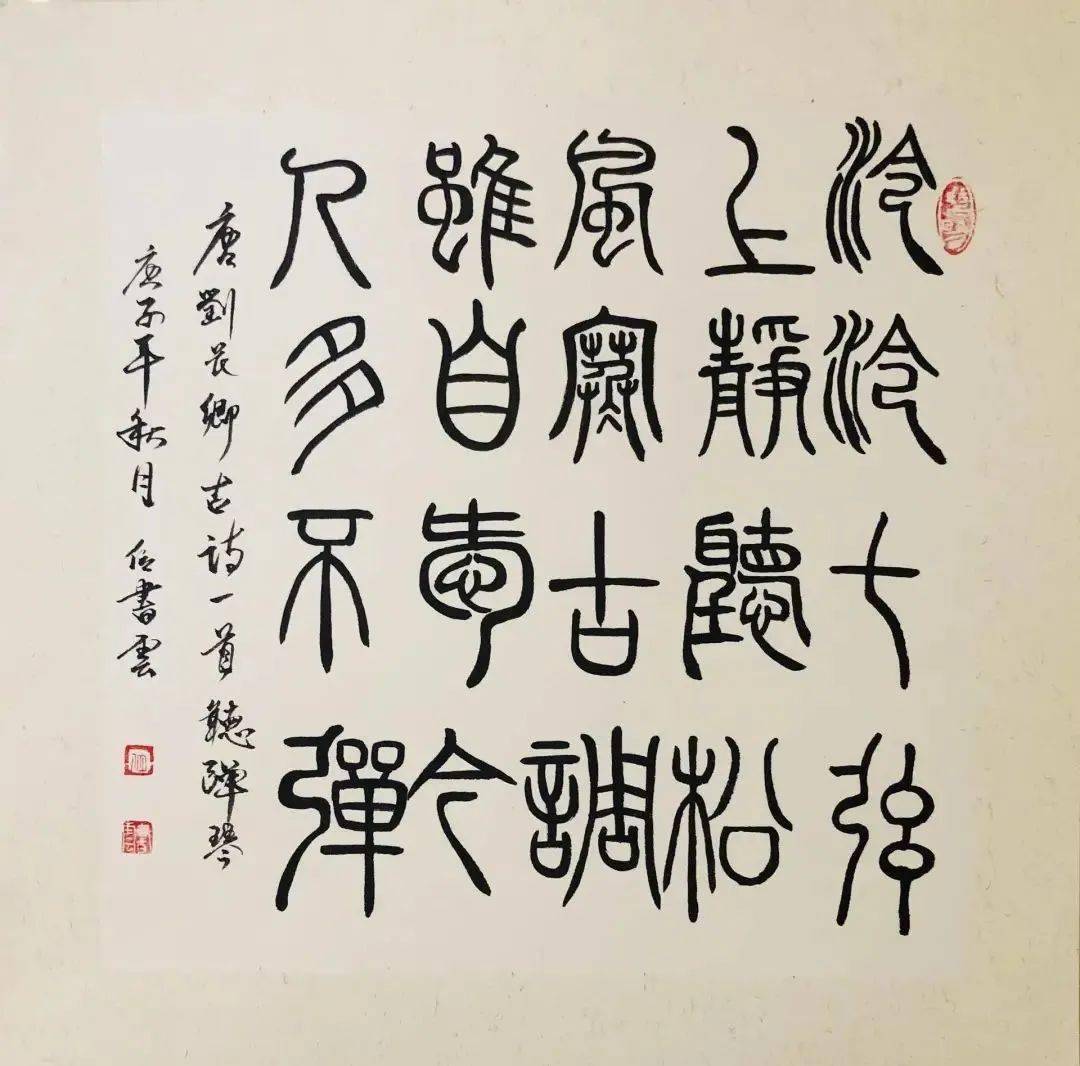 泠泠七弦
上靜聽松
風寒古調
雖自愛今
人多不彈
唐劉長卿古詩一首聽彈琴
庚子年秋月書雲